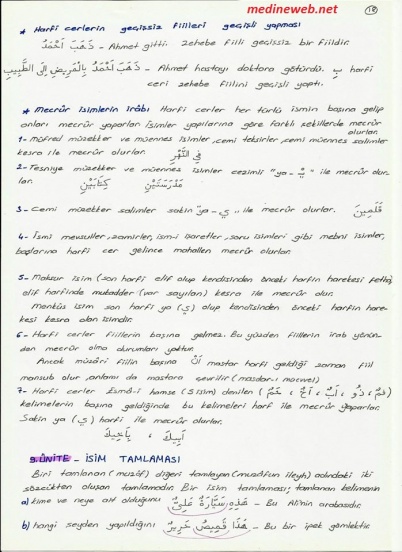 medineweb.net
* Harfi cerlerin geçişsiz fiilleri geçişli yapması
ذَهَبَ أَحْمَدُ - Ahmet gitti. Zehebe fiili geçişsiz bir fiildir.
ذَهَبَ أَحْمَدُ بِالْمَرِيضِ إِلَى الطَّبِيبِ - Ahmet hastayı doktora götürdü. بِ harfi
ceri zehebe fiilini geçişli yaptı.
* Mecrûr isimlerin irâbı Harfi cerler her türlü ismin başına gelip
onları mecrûr yaparlar. İsimler yapılarına göre farklı şekillerde mecrûr
olurlar.
1- Müfred müzekker ve müennes isimler, cemi teksirler, cemi müennes salimler
kesra ile mecrûr olurlar. فِي النَّهْرِ
2- Tesniye müzekker ve müennes isimler cezimli "ya - يْ" ile mecrûr olur-
lar. مَدْرَسَتَيْنِ كِتَابَيْنِ
3- Cemi müzekker salimler sakin "ya - ي" ile mecrûr olurlar.
4- İsmi mevsuller, zamirler, ism-i işaretler, soru isimleri gibi mebni isimler,
başlarına harfi cer gelince mahallen mecrûr olurlar.
5- Maksur isim (son harfi elif olup kendisinden önceki harfin harekesi fetha)
elif harfinde mukadder (var sayılan) kesra ile mecrûr olur.
Menkûs isim son harfi ya (ي) olup kendisinden önceki harfin hare-
kesi kesra olan isimdir.
6- Harfi cerler fiillerin başına gelmez. Bu yüzden fiillerin irab yönün-
den mecrûr olma durumları yoktur.
Ancak müzâri fiilin başına أَنْ mastar harfi geldiği zaman fiil
mansub olur, anlamı da mastara çevrilir (masdar-ı müevvel)
7- Harfi cerler Esmâ-i hamse (5 isim) denilen (فَمٌ، ذُو، أَبٌ، أَخٌ، حَمٌ)
kelimelerin başına geldiğinde bu kelimeleri harf ile mecrûr yaparlar.
Sakin ya (ي) harfi ile mecrûr olurlar.
أَبِيكَ ، بِأَخِيكَ
9.ÜNİTE - İSİM TAMLAMASI
Biri tamlanan (muzâf) diğeri tamlayan (muzâfun ileyh) adındaki iki
sözcükten oluşan tamlamadır. Bir isim tamlaması; tamlanan kelimenin
a) kime ve neye ait olduğunu هَذِهِ سَيَّارَةُ عَلِيٍّ - Bu Ali'nin arabasıdır.
b) hangi şeyden yapıldığını هَذَا قَمِيصُ حَرِيرٍ - Bu bir ipek gömlektir.